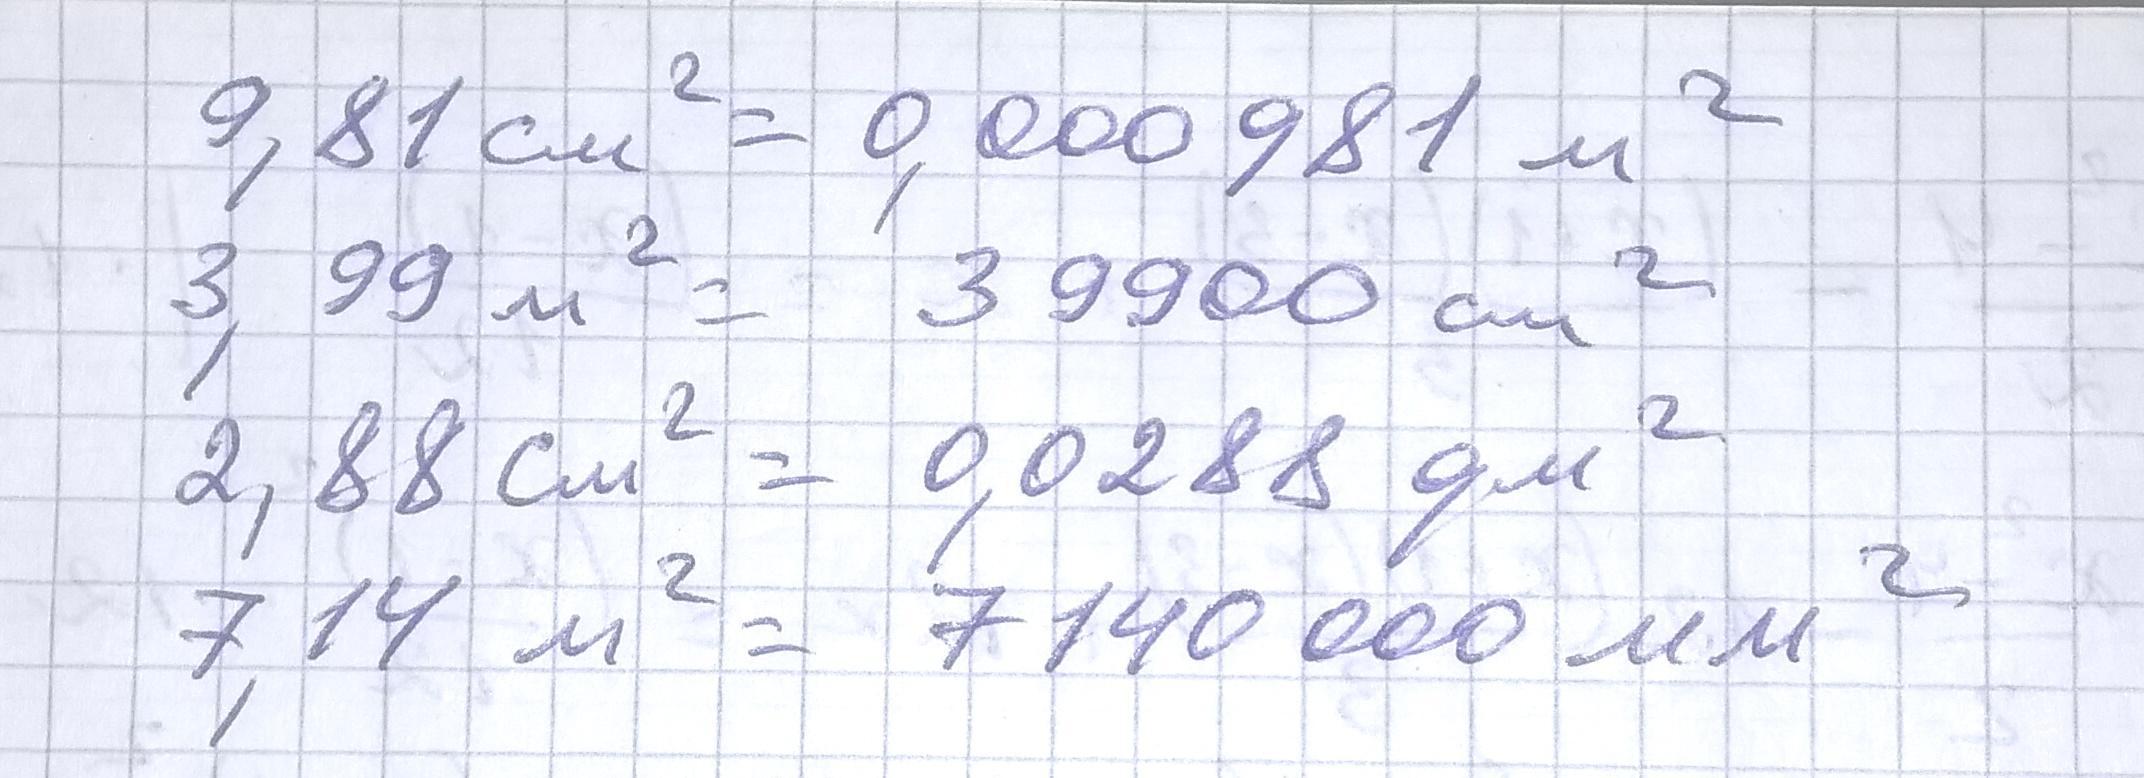 9,81 см² = 0,000981 м²
3,99 м² = 39900 см²
2,88 см² = 0,0288 дм²
7,14 м² = 7140000 мм²